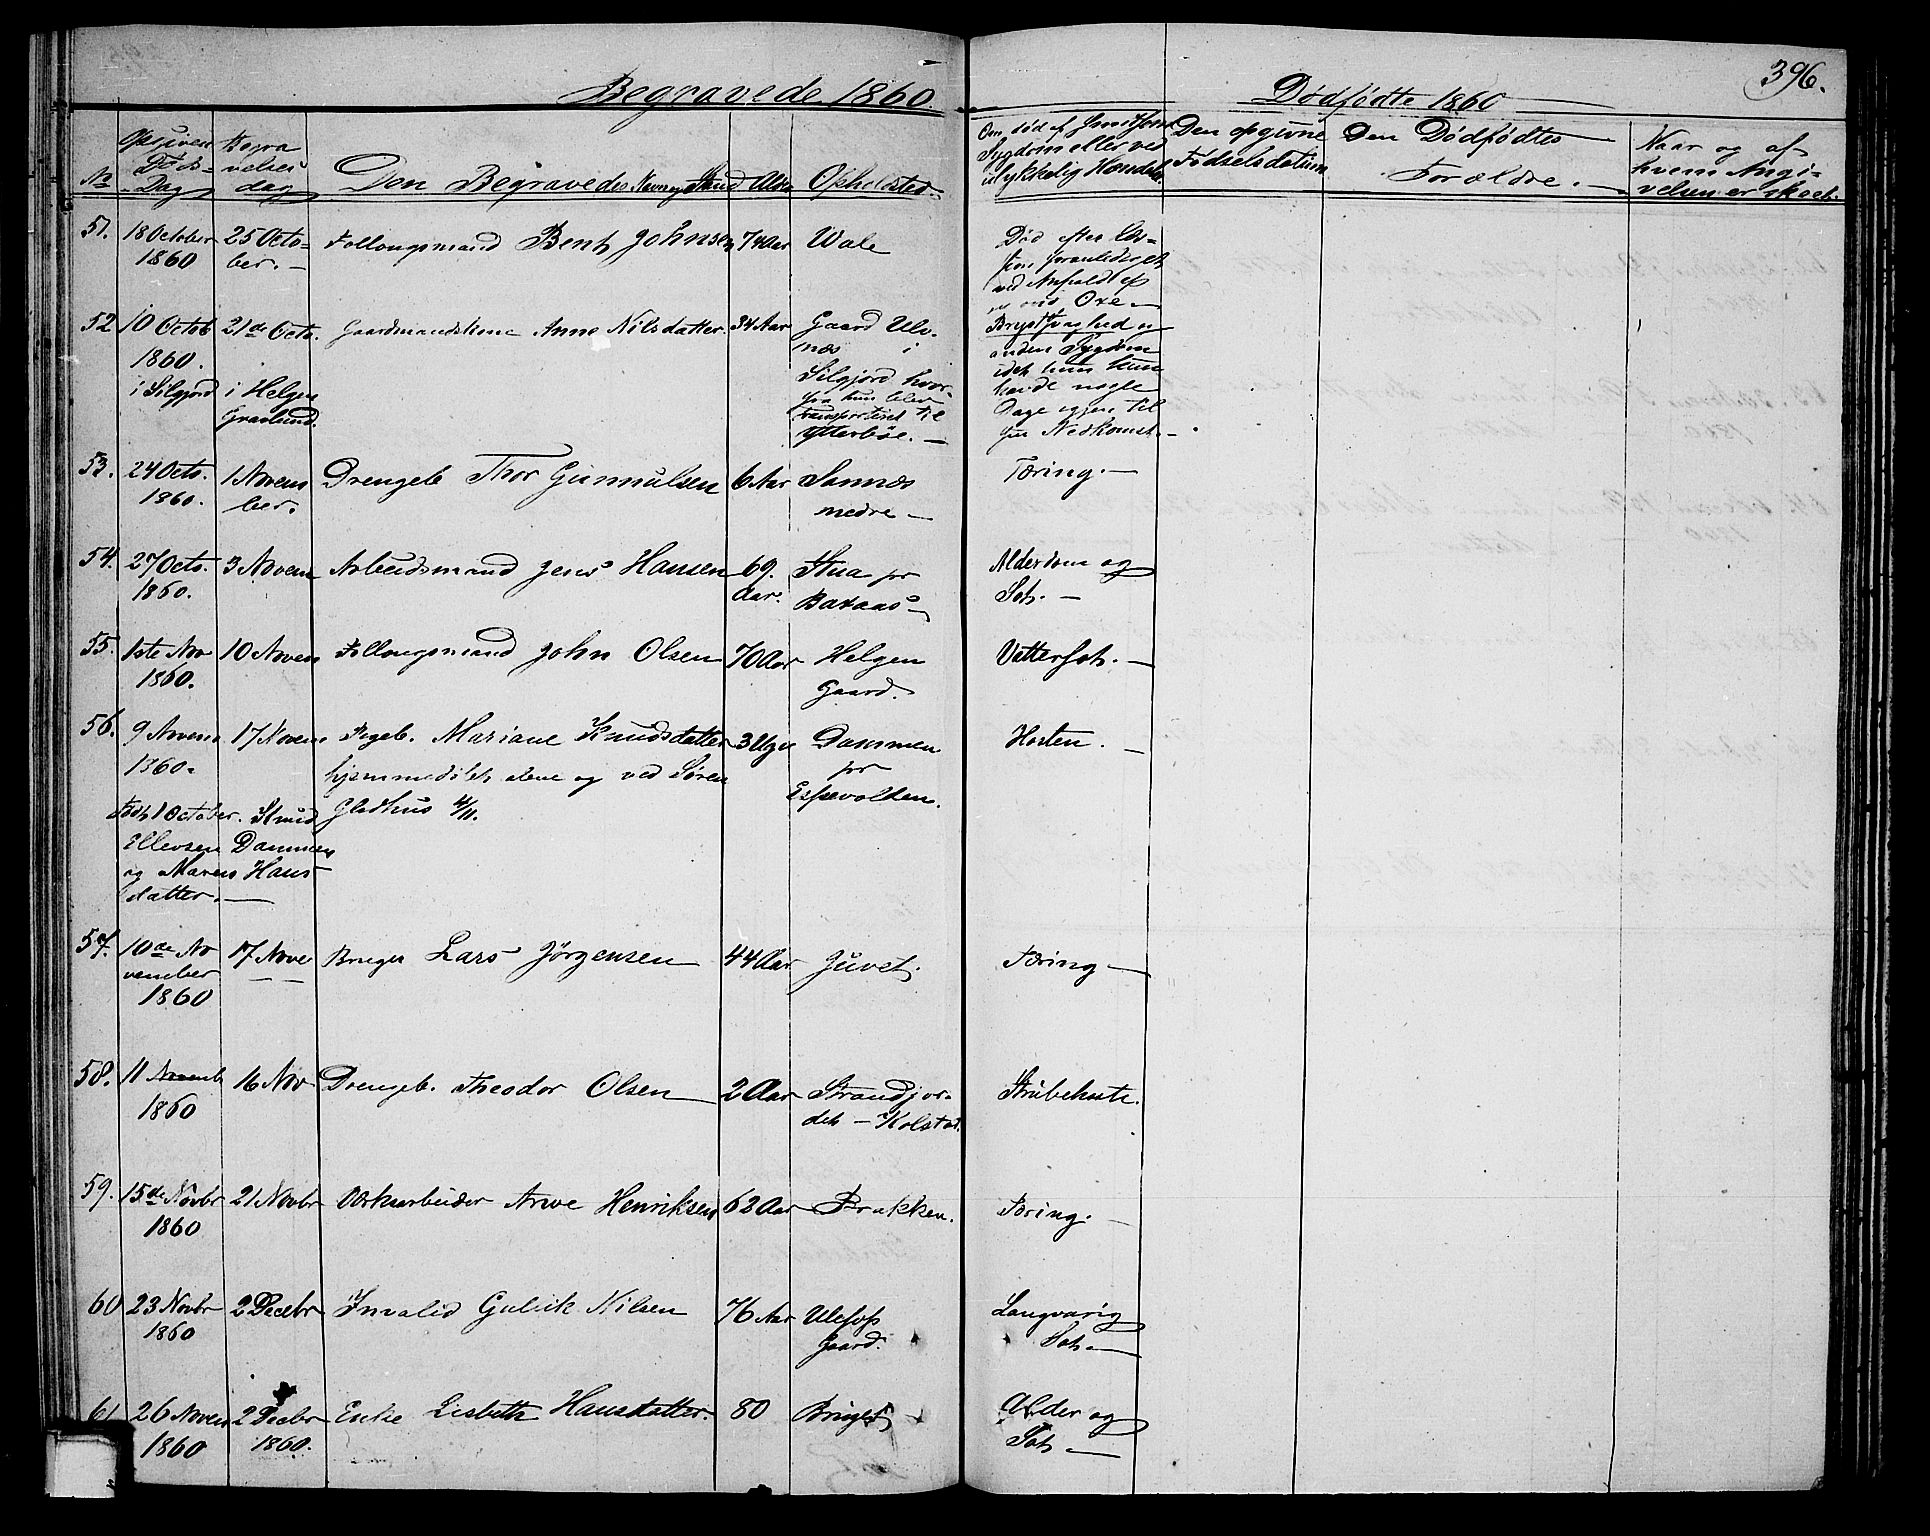 396.
Begravede 1860.
Dødfødte 1860
No
Opgiven Døds-Dag
Begravelses dag
Den Begravedes Navn og Stand
Alder
Opholdsted
Om død af Smitsom Sygdom eller ved ulykkelig Hændelse
Den opgivne Fødselsdatum
Den Dødfødtes Forældre.
Naar og af hvem Angivelsen er skeet.
51. 18 October 1860
25 Octo-
ber.
Follougsmand Bent Johnsen
74 Aar
Vale
Død efter
ved Anfald af
Oxe
52 10 Octob 1860.
i Silgjord
21de Octo.
i Helgen
Gravlund.
Gaardmandskone Anne Nilsdatter.
34 Aar
Gaard Ulv-
næs i
Silgjord hvor-
fra hun blev
transporteret til
Ytterbøe.
Brystsvaghed og
anden Sygdom
idet hun kun
havde nogle
Dage igjen til
sin Nedkomst.
53. 24 Octo. 1860.
1 Novem
ber.
Drengeb Thor Gunnulsen
6 Aar
Sannæs
nedre
Tæring.
54. 27 Octo. 1860.
3 Novem
Arbeidsmand Jens Hansen
69. Aar.
Stua pr
Baxaas
Alderdom og
Sot.
55. 1ste Nov 1860.
10 Novem
Follougsmand John Olsen
70 Aar
Helgen
Gaard.
Vattersot.
56. 9 Novem 1860.
17 Novem
Pigeb. Mariane Knudsdatter
3 Uger
Dammen
pr
Espevolden.
Hosten.
hjemmedøbt og ved Søren
Gladhus 4/11.
Født 1 October. Knud
Ellevsen Dammen
og Maren Hans
datter.
57. 10de No
vember
1860
17 Nove
Bruger Lars Jörgensen
44 Aar
Juvet.
Tæring
58. 11 Novemb 1860
16 Nov
Drengeb. Theodor Olsen
2 Aar
Strandjor-
det - Kolstad.
Strubehoste.
59. 15de Novbr 1860
21 Novbr
Værksarbeider Arve Henriksen
62 Aar
Brækken.
Tæring.
60 23 Novbr 1860
2 Decebr
Invalid Gulvik Nilsen
76 Aar
Ulefoss
Gaard.
Langvarig
Sot.
61 26 Novem 1860
2 Decebr 1860.
Enke Lisbeth Hansdatter.
80
Alder og
Sot